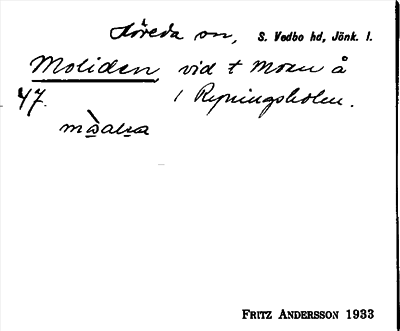 Höreda sn, S. Vedbo hd, Jönk. l.
Moliden vid t Moen å
47. / Repningsholen.
Fritz Andersson 1933